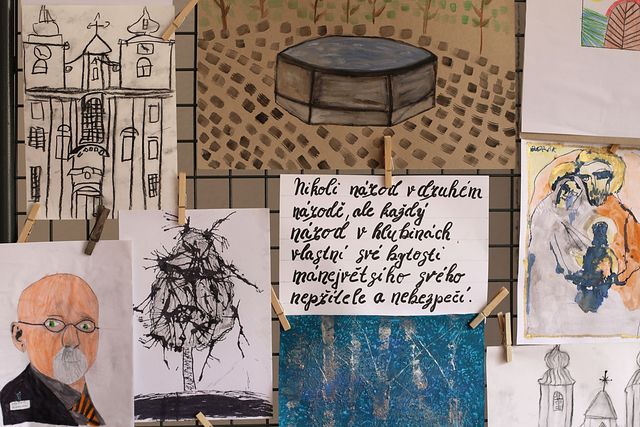 Nikoli národ v druhém
národě, ale každý
národ v hlubinách
vlastní své bytosti
má největšího svého
nepřítele a nebezpečí.